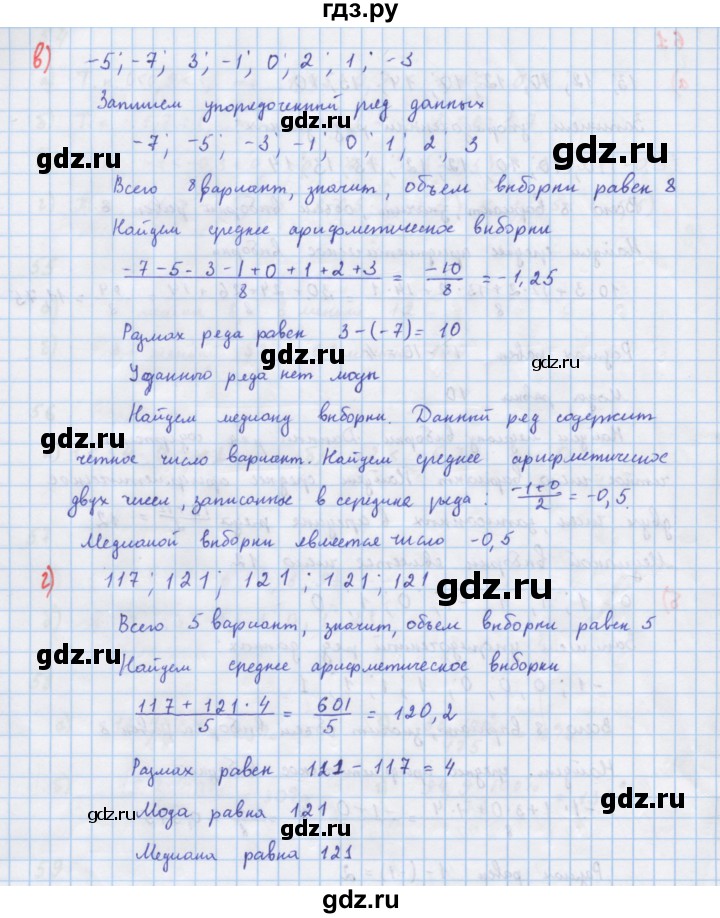 гдз.ру
в) -5; -7; 3; -1; 0; 2; 1; -3
Запишем упорядоченный ряд данных
gdz.ru
gdz.ru
-7; -5; -3; -1; 0; 1; 2; 3
gdz.ru
Всего 8 вариант, значит, объем выборки равен 8
Найдем среднее арифметическое выборки
-7-5-3-1+0+1+2+3/8 = -10/8 = -1,25
Размах ряда равен 3-(-7)=10
gdz.ru
gdz.ru
У данного ряда нет моды
Найдем медиану выборки. Данный ряд содержит
gdz.ru
четное число вариант. Найдем среднее арифметическое
двух чисел, записанное в середине ряда: -1+0/2 = -0,5.
gdz.ru
Медианой выборки является число -0,5
г) 117; 121; 121; 121; 121
gdz.ru
gdz.ru
Всего 5 вариант, значит, объем выборки равен 5
Найдем среднее арифметическое выборки
117+121·4/5 = 601/5 = 120,2
gdz.ru
gdz.ru
Размах равен 121-117=4
Мода равна 121
gdz.ru
gdz.ru
gdz.ru
Медиана равна 121
gdz.ru